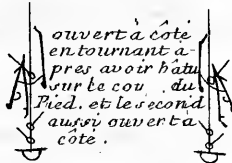 ouvert à côté
en tournant a-
pres avoir batu
sur le cou du
Pied. et le second
aussi ouvert à
côté.